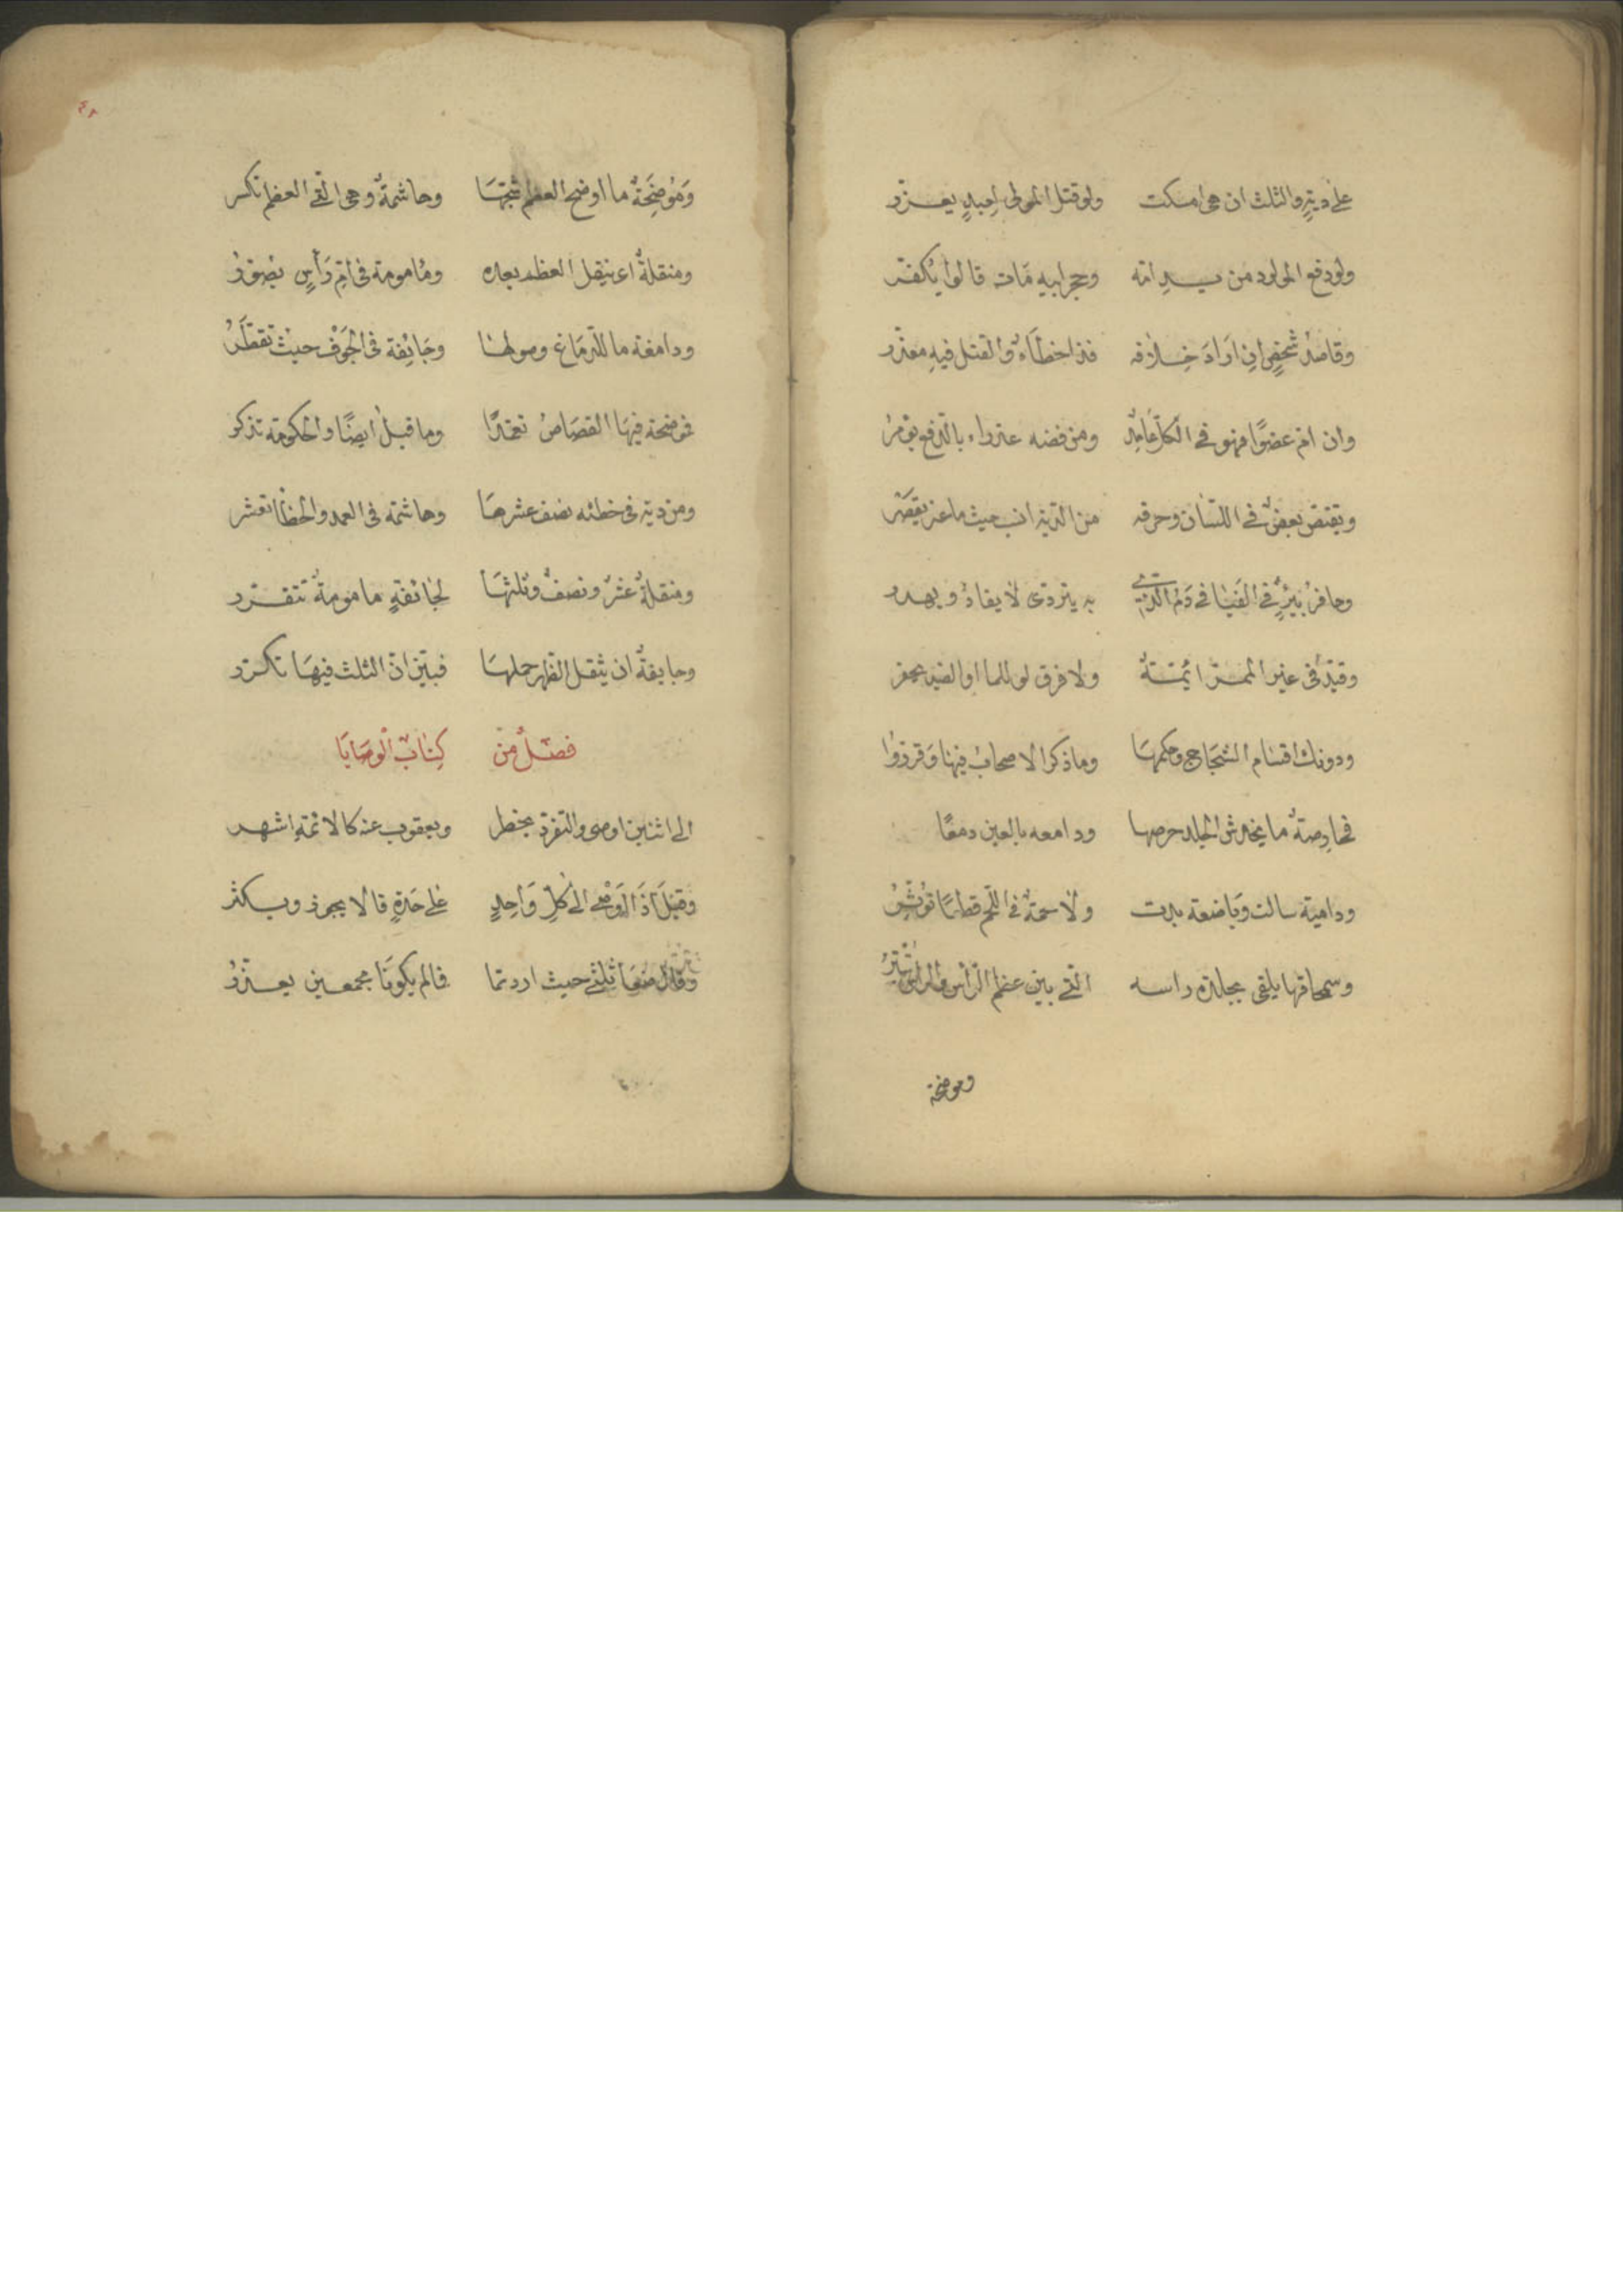 على دية والثلث ان هى امسكت ولو قتل المولى لعبد يعزر
ولو دفع المولود من يد امه وجر ابيه مات قالوا يكفر
وقاصد شخص ان اراد خلافه فذا خطاء والقتل فيه معذر
وان ام عضوا فهو فى الكل عامد ومن فضه عذراء بالدفع يومر
ويقتص بعض فى اللسان وحرفه من الدية انسب حيث ما عنه يقصر
وحافر بير فى الفنا فى دم الذى به يتردى لا يقاد ويهدر
وقيد فى غير الممر ائمة ولا فرق لو للما او الصيد يحفر
ودونك اقسام الشجاج وحكمها وما ذكر الاصحاب فيها وقرروا
فحارصة ما يخدش الجلد حرصها ودامعه بالعين دمعا
ودامية سالت وباضعة بدت ولاحمة فى اللحم قطعا توثر
وسمحاقها يلقى بجلدة راسه التى بين عظم الرأس
وموضحة
٤٨
وموضحة ما اوضح العظم شجها وهاشمة وهى التى العظم تكسر
ومنقلة اى ينقل العظم بعده ومامومة فى ام رأس تصور
ودامغة ما للدماغ وصولها وجائفة فى الجوف حيث تقطر
فموضحة فيها القصاص تعمدا وما قبل ايضا والحكومة تذكر
ومن دية فى خطئه نصف عشرها وهاشمة فى العمد والخطأ تعشر
ومنقلة عشر ونصف وثلثها لجائفة مامومة تتقرر
وجايفة ان ينقل الظهر حملها فبين ان الثلث فيها تكرر
فصل من كتاب الوصايا
الى اثنين اوصى والتفرد يحظر ويعقوب عنه كالائمة اشهر
وقيل اذ الوصى الى كل واحد على حدة قالا يجوز ويكثر
ضعا ثلثى حيث اردتما فالم يكونا مجمعين يعزر